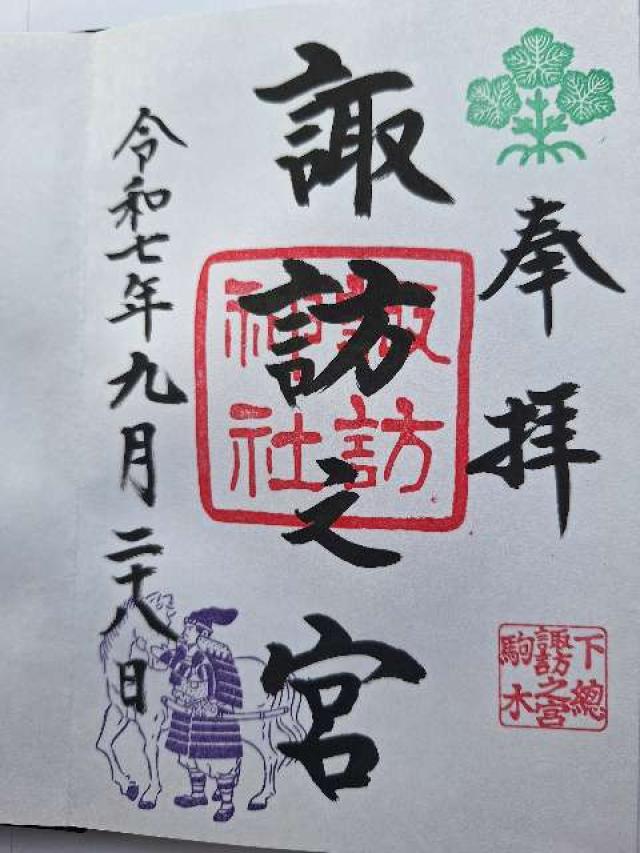 奉拝
諏訪之宮
諏訪
神社
下總
諏訪之宮
駒木
令和七年九月二十八日